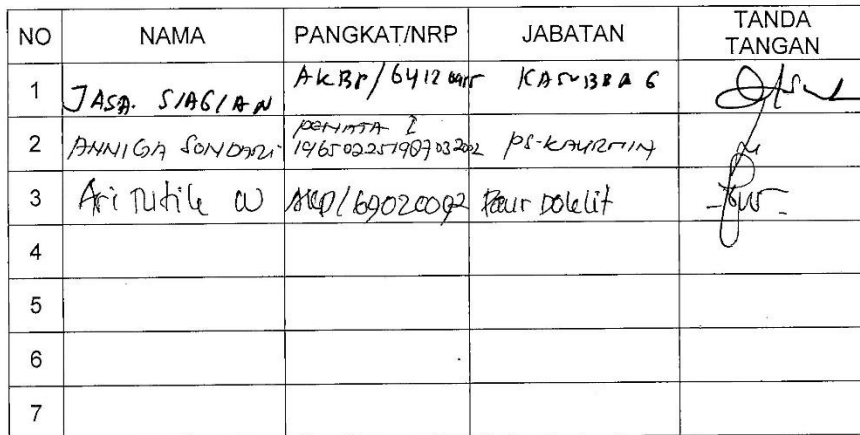 NO NAMA PANGKAT/NRP JABATAN TANDA TANGAN
1 JASA. SIAGIAN AKBP/6412 KASUBBAG
2 ANNIGA SONDARI PENATA I 196502251987032002 PS-KAURMIN
3 Ari Tutik W AKP/69020092 Paur Doklit
4
5
6
7